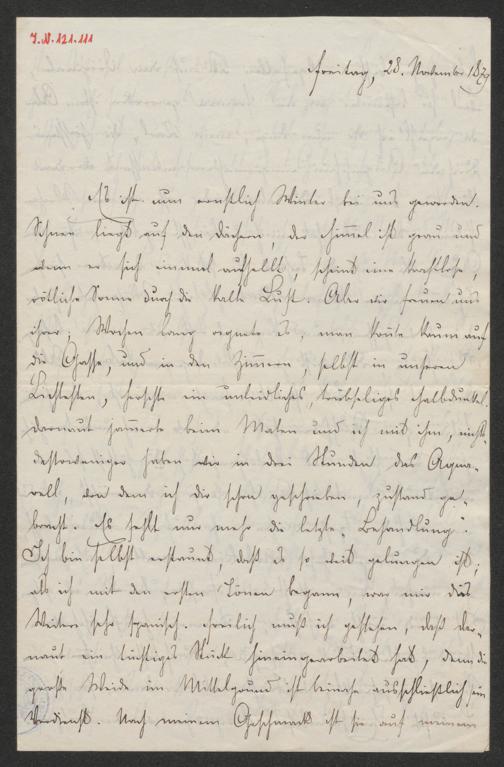 J.N. 121.111
Freitag, 28. November 1879
Es ist nun ernstlich Winter bei uns geworden.
Schnee liegt auf den Dächern, der Himmel ist grau und
wenn er sich einmal aufhellt, scheint eine strahllose,
rötliche Sonne durch die kalte Luft. Aber wir freuen uns
ihrer; Wochen lang regnete es, man konte kaum auf
die Gasse, und in den Zimmern, selbst in unseren
Lichtesten, herschte ein unleidliches, trübseliges Halbdunkel.
Darnaut jammerte beim Malen und ich mit ihm, nichts-
destoweniger haben wir in drei Stunden das Aqua-
rell, von dem ich dir schon geschrieben, zustand ge-
bracht. Es fehlt nur mehr die letzte „Behandlung".
Ich bin selbst erstaunt, daß es so weit gelungen ist;
als ich mit den ersten Tönen begann, war mir das
Weitere sehr spanisch. Freilich muß ich gestehen, daß Dar-
naut ein tüchtiges Stück hineingearbeitet hat, denn die
große Weide im Mittelgrund ist beinahe ausschließlich sein
Verdienst. Nach meinem Geschmack ist sie auf meinem